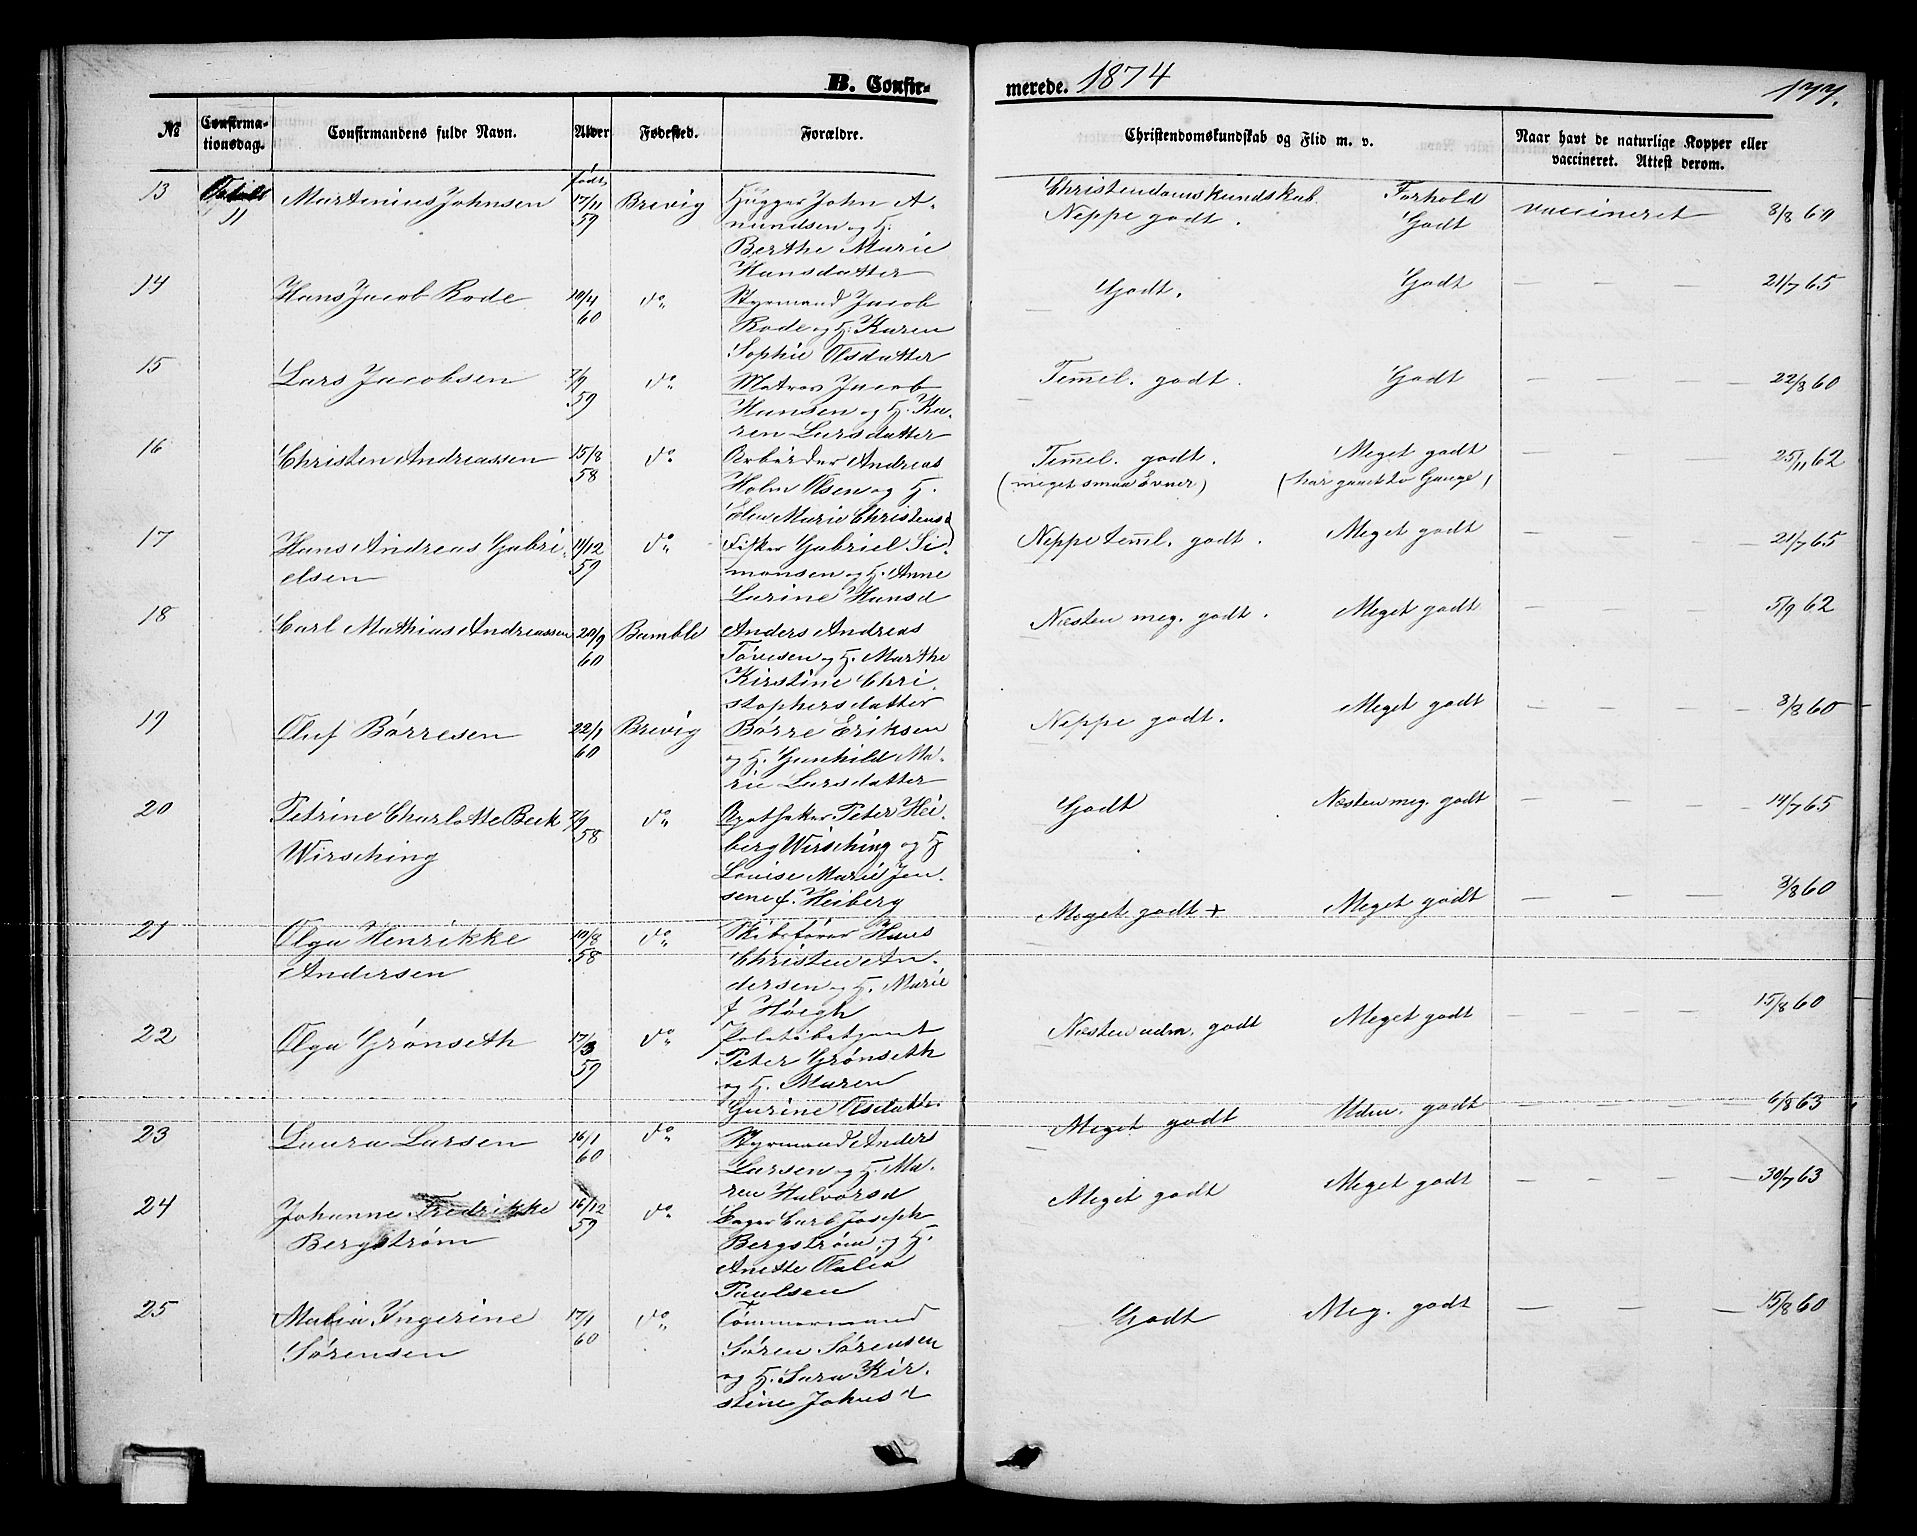 B. Confir-
merede. 1874
177.
No
Confirma-
tionsdag.
Confirmandens fulde Navn.
Alder
Fødested.
Forældre.
Christendomskundskab og Flid m. v.
Naar havt de naturlige Kopper eller
vaccineret. Attest derom.
født
Christendomskundskab.
Forhold
13 11 Martinius Johnsen 17/11 59 Brevig
Hugger John A-
mundsen og H.
Berthe Marie
Hansdatter
Neppe godt. Godt vaccineret 3/8 60
14 Hans Jacob Rode 10/4 60 do
Styrmand Jacob
Rode og H. Karen
Sophie Olsdatter
Godt. Godt — — — 21/7 65
15 Lars Jacobsen 7/9 59 do
Matros Jacob
Hansen og H. Ka-
ren Larsdatter
Temel. godt. Godt — — — 22/8 60
16 Christen Andreassen 15/8 58 do
Arbeider Andreas
Holm Olsen og H.
Elen Marie Christensd
Temel. godt. Meget godt — — — 25/11 62
(meget smaa Evner) (har gaaet to Gange)
17 Hans Andreas Gabri-
elsen 14/12 59 do
Fisker Gabriel Si-
monsen og H. Anne
Larine Hansd
Neppe teml. godt. Meget godt — — — 21/7 65
18 Carl Mathias Andreassen 20/9 60 Bamble
Anders Andreas
Tøresen og H. Marthe
Kirstine Chri-
stophersdatter
Næsten meg. godt. Meget godt — — — 5/9 62
19 Oluf Børresen 22/1 60 Brevig
Børre Eriksen
og H. Gunhild Ma-
rie Larsdatter
Neppe godt. Meget godt — — — 3/8 60
20 Petrine Charlotte Beck
Wirsching 7/9 58 do
Apotheker Peter Hei-
berg Wirsching og H
Louise Marie Jen-
sene f. Heiberg
Godt Næsten meg. godt — — — 14/7 65
21 Olga Henrikke
Andersen 10/8 58 do
Skibsfører Hans
Christen An-
dersen og H. Marie
f Høegh
Meget godt + Meget godt — — — 3/8 60
22 Olga Grønseth 17/3 59 do
Politibetjent
Peter Grønseth
og H. Maren
Gurine Olsdatt.
Næsten udm. godt Meget godt — — — 15/8 60
23 Laura Larsen 16/1 60 do
Styrmand Anders
Larsen og H. Ma-
ren Halvorsd
Meget godt Udm. godt — — — 6/8 63
24 Johanne Fredrikke
Bergstrøm 16/12 59 do
Bager Carl Joseph
Bergstrøm og H.
Anette Olalia
Paulsen
Meget godt Meget godt — — — 30/7 63
25 Malia Ingerine
Sørensen 17/1 60 do
Tømmermand
Søren Sørensen
og H. Sara Kir-
stine Johnsd
Godt Meg. godt — — — 15/8 60